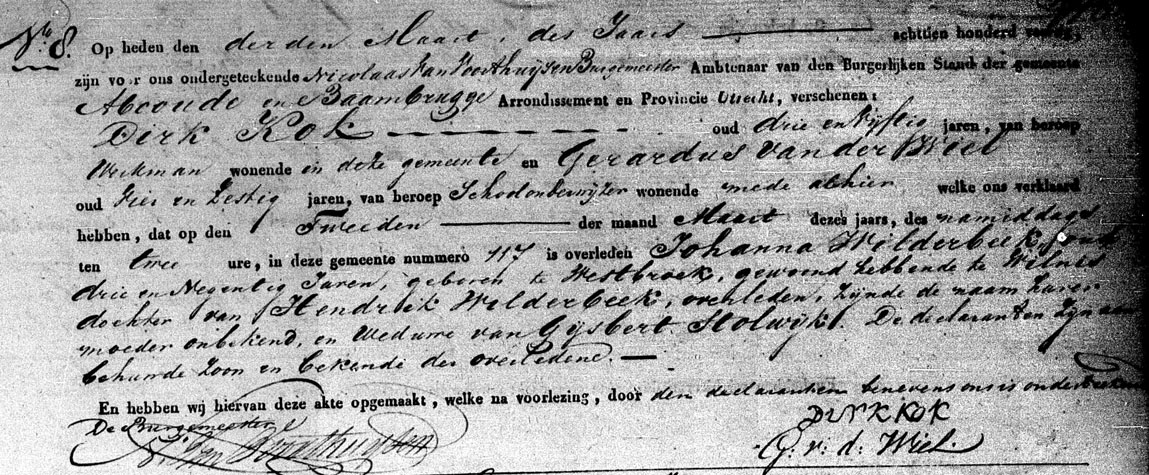 No. 8.
Op heden den derden Maart, des Jaars achttien honderd veertig,
zijn voor ons ondergeteekende Nicolaas Van Voorthuijsen Burgemeester Ambtenaar van den Burgerlijken Stand der gemeente
Abcoude en Baambrugge Arrondissement en Provincie Utrecht, verschenen:
Dirk Kok oud drie en Vijftig jaren, van beroep
Werkman wonende in deze gemeente en Gerardus van der Wiel
oud Vier en Zestig jaren, van beroep Schoolonderwijzer wonende mede alhier welke ons verklaard
hebben, dat op den Tweeden der maand Maart dezes jaars, des namiddags
ten twee ure, in deze gemeente nummero 117 is overleden Johanna Wilderbeek, oud
drie en Negentig Jaren, geboren te Westbroek, gewoond hebbende te Wilnes
dochter van Hendrik Wilderbeek, overleden, zijnde de naam harer
moeder onbekend, en Weduwe van Gijsbert Stolwijk. De declaranten zijn aan
behuwde Zoon en bekende der overledene.
En hebben wij hiervan deze akte opgemaakt, welke na voorlezing, door den declaranten benevens ons is onderteekend
De Burgemeester
N. Van Voorthuijsen
DIRK KOK
G. v. d. Wiel.